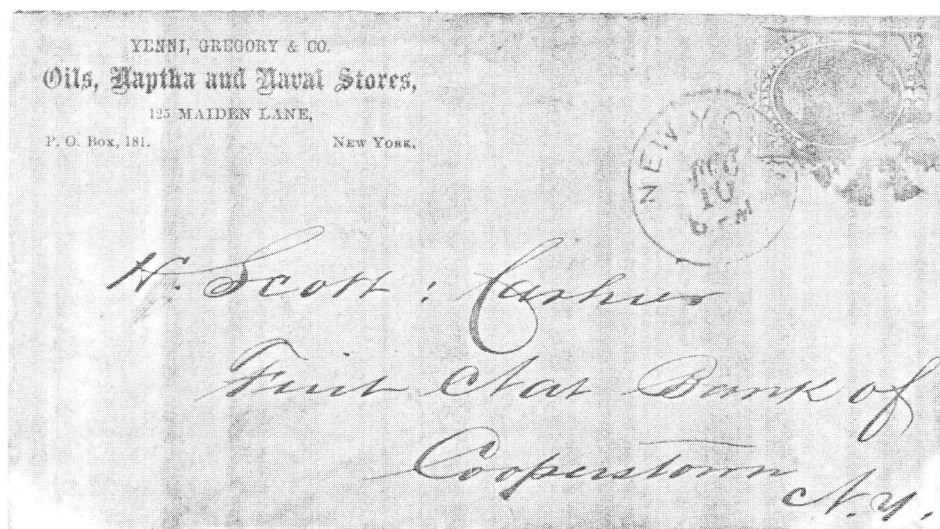 YENNI, GREGORY & CO.
Oils, Naptha and Naval Stores,
125 MAIDEN LANE,
P. O. Box, 181. NEW YORK,
NEW YO
10
H. Scott : Cashier
First Nat Bank of
Cooperstown
N.Y.